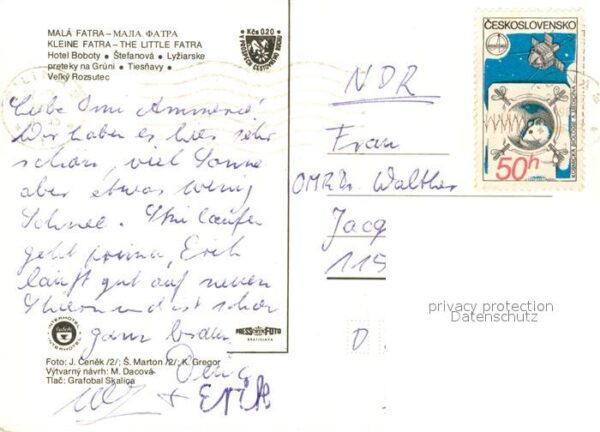 MALÁ FATRA – МАЛА ФАТРА
KLEINE FATRA – THE LITTLE FATRA
Hotel Boboty • Štefanová • Lyžiarske
preteky na Grúni • Tiesňavy •
Veľký Rozsutec
Kčs 0,20
ČESKOSLOVENSKO
50h
Liebe Omi
Wir haben es hier sehr
schön, viel Sonne
aber etwas wenig
Schnee. Skilaufen
geht prima, Erik
läuft gut auf neuen
Skiern und ist schon
ganz
+ Erik
NDR
Frau
OMR Dr. Walther
Jacq
115
D
privacy protection
Datenschutz
INTERHOTEL
PRESSFOTO
BRATISLAVA
Foto: J. Čeněk /2/; Š. Marton /2/; K. Gregor
Výtvarný návrh: M. Dacová
Tlač: Grafobal Skalica